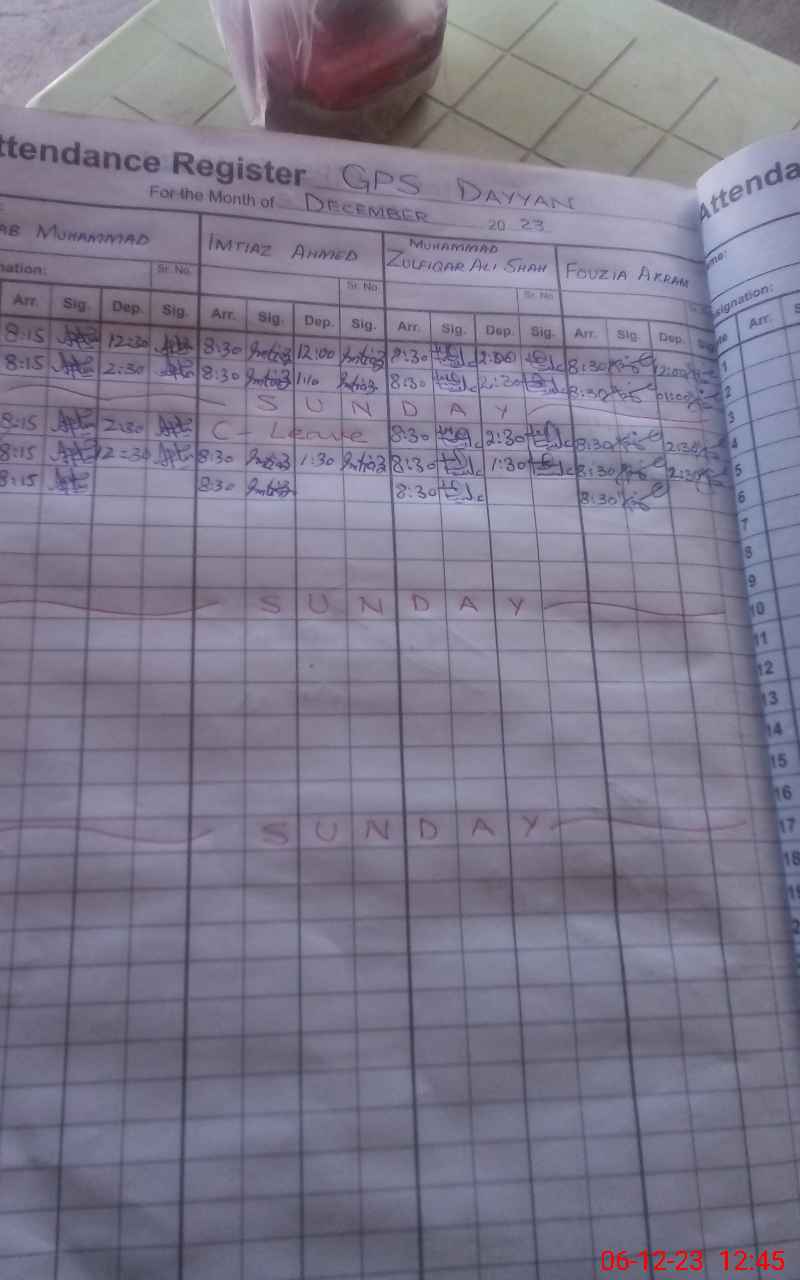 ttendance Register GPS DAYYAN
For the Month of DECEMBER 20 23
AB MUHAMMAD IMTIAZ AHMED MUHAMMAD ZULFIQAR ALI SHAH FOUZIA AKRAM
nation: Sr. No. Sr. No. Sr. No.
Arr. Sig. Dep. Sig. Arr. Sig. Dep. Sig. Arr. Sig. Dep. Sig. Arr. Sig. Dep.
8:15 12:30 8:30 Imtiaz 12:00 Imtiaz 8:30 2:00 8:30 12:00
8:15 2:30 8:30 Imtiaz 1:10 Imtiaz 8:30 2:30 8:30
SUNDAY
8:15 2:30 C-Leave 8:30 2:30 8:30 2:30
8:15 12=30 8:30 Imtiaz 1:30 Imtiaz 8:30 1:30 8:30 2:30
8:15 8:30 Imtiaz 8:30 8:30
SUNDAY
SUNDAY
Attenda
me:
signation:
Arr.
1
2
3
4
5
6
7
8
9
10
11
12
13
14
15
16
17
18
06-12-23 12:45